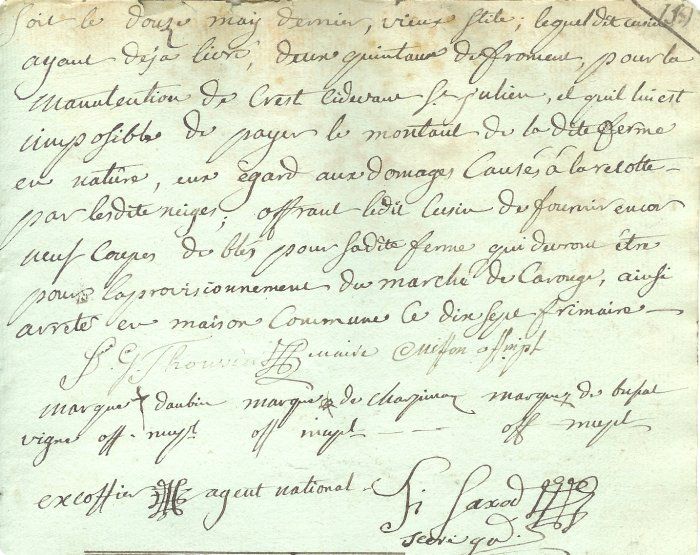 soit le douze may dernier, vieux stile; lequel dit cusin
ayant deja livré, deux quintaux de froment, pour la
manutention de Crest cidevant St julien, et qu'il lui est
imposible de payer le montant de la dite ferme
en nature, eux égard aux domages causés à la recolte
par lesdite neiges; offrant ledit Cusin de fournir encor
neuf coupes de bléf pour sadite ferme qui devront être
pour laprovisionnement du marché de Carouge, ainsi
arreté en maison Commune ce dix sept frimaire
Thouvin maire off
marque daubin marque de marque de
vigne off. mupt off mupt off mupt
excoffier agent national
Saxod